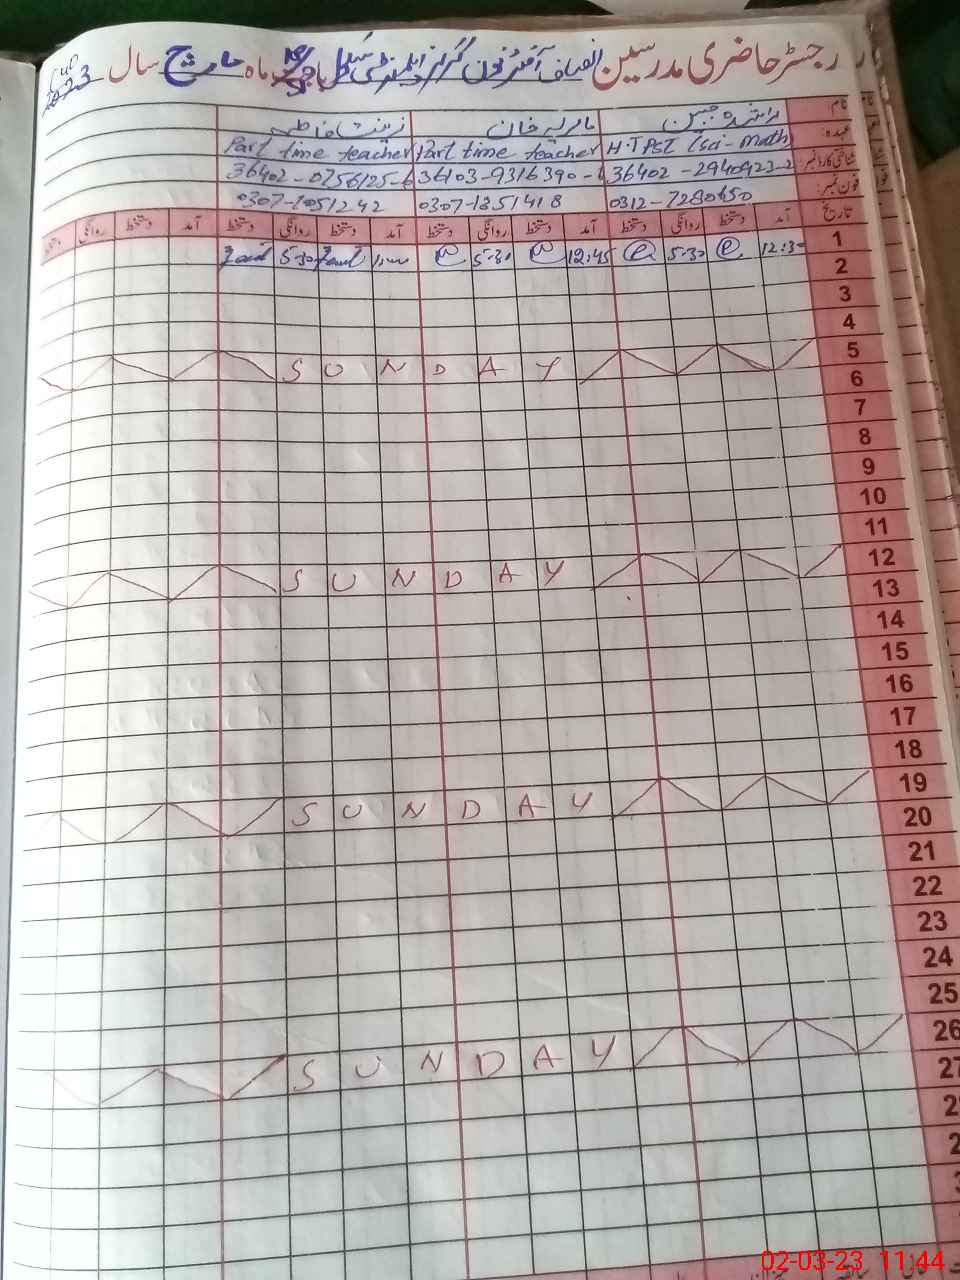 رجسٹر حاضری مدرسین انصاف آفٹر نون گرلز ایلیمنٹری سکول ماہ مارچ سال 2023
نام: راشدہ جبین ماریہ خان زینت فاطمہ
عہدہ: H.T PST (Sci-Math) Part time teacher Part time teacher
شناختی کارڈ نمبر: 36402-2940923-2 36103-9316390- 36402-0756125-6
فون نمبر: 0312-7280650 0307-1851418 0307-1051242
تاریخ آمد دستخط روانگی دستخط آمد دستخط روانگی دستخط آمد دستخط روانگی دستخط آمد دستخط روانگی دستخط
1 12:30 5-30 12:45 5-30 5-30
2
3
4
5 SUNDAY
6
7
8
9
10
11
12 SUNDAY
13
14
15
16
17
18
19 SUNDAY
20
21
22
23
24
25
26 SUNDAY
27
02-03-23 11:44